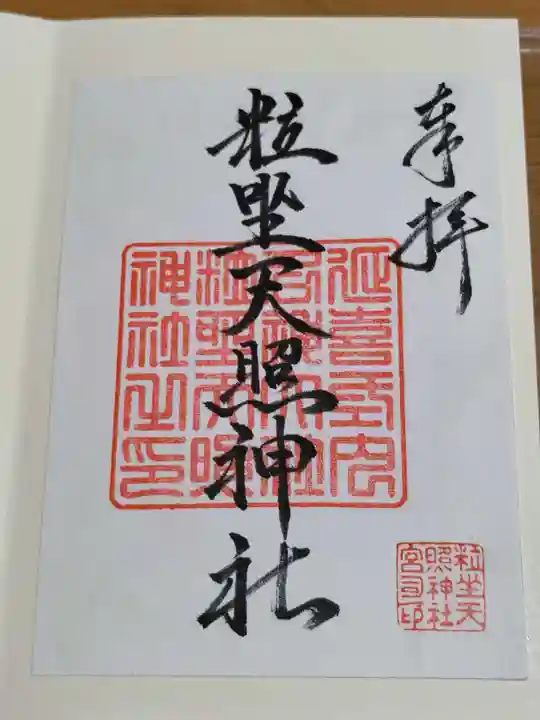 奉拝
粒坐天照神社
延喜式内
名神大社
粒坐天照
神社之印
粒坐天
照神社
宮司印